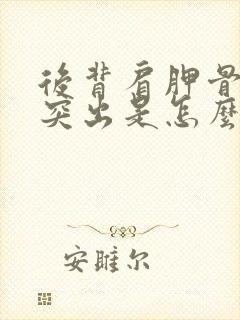 後背肩胛骨
突出是怎麼
安雎尔